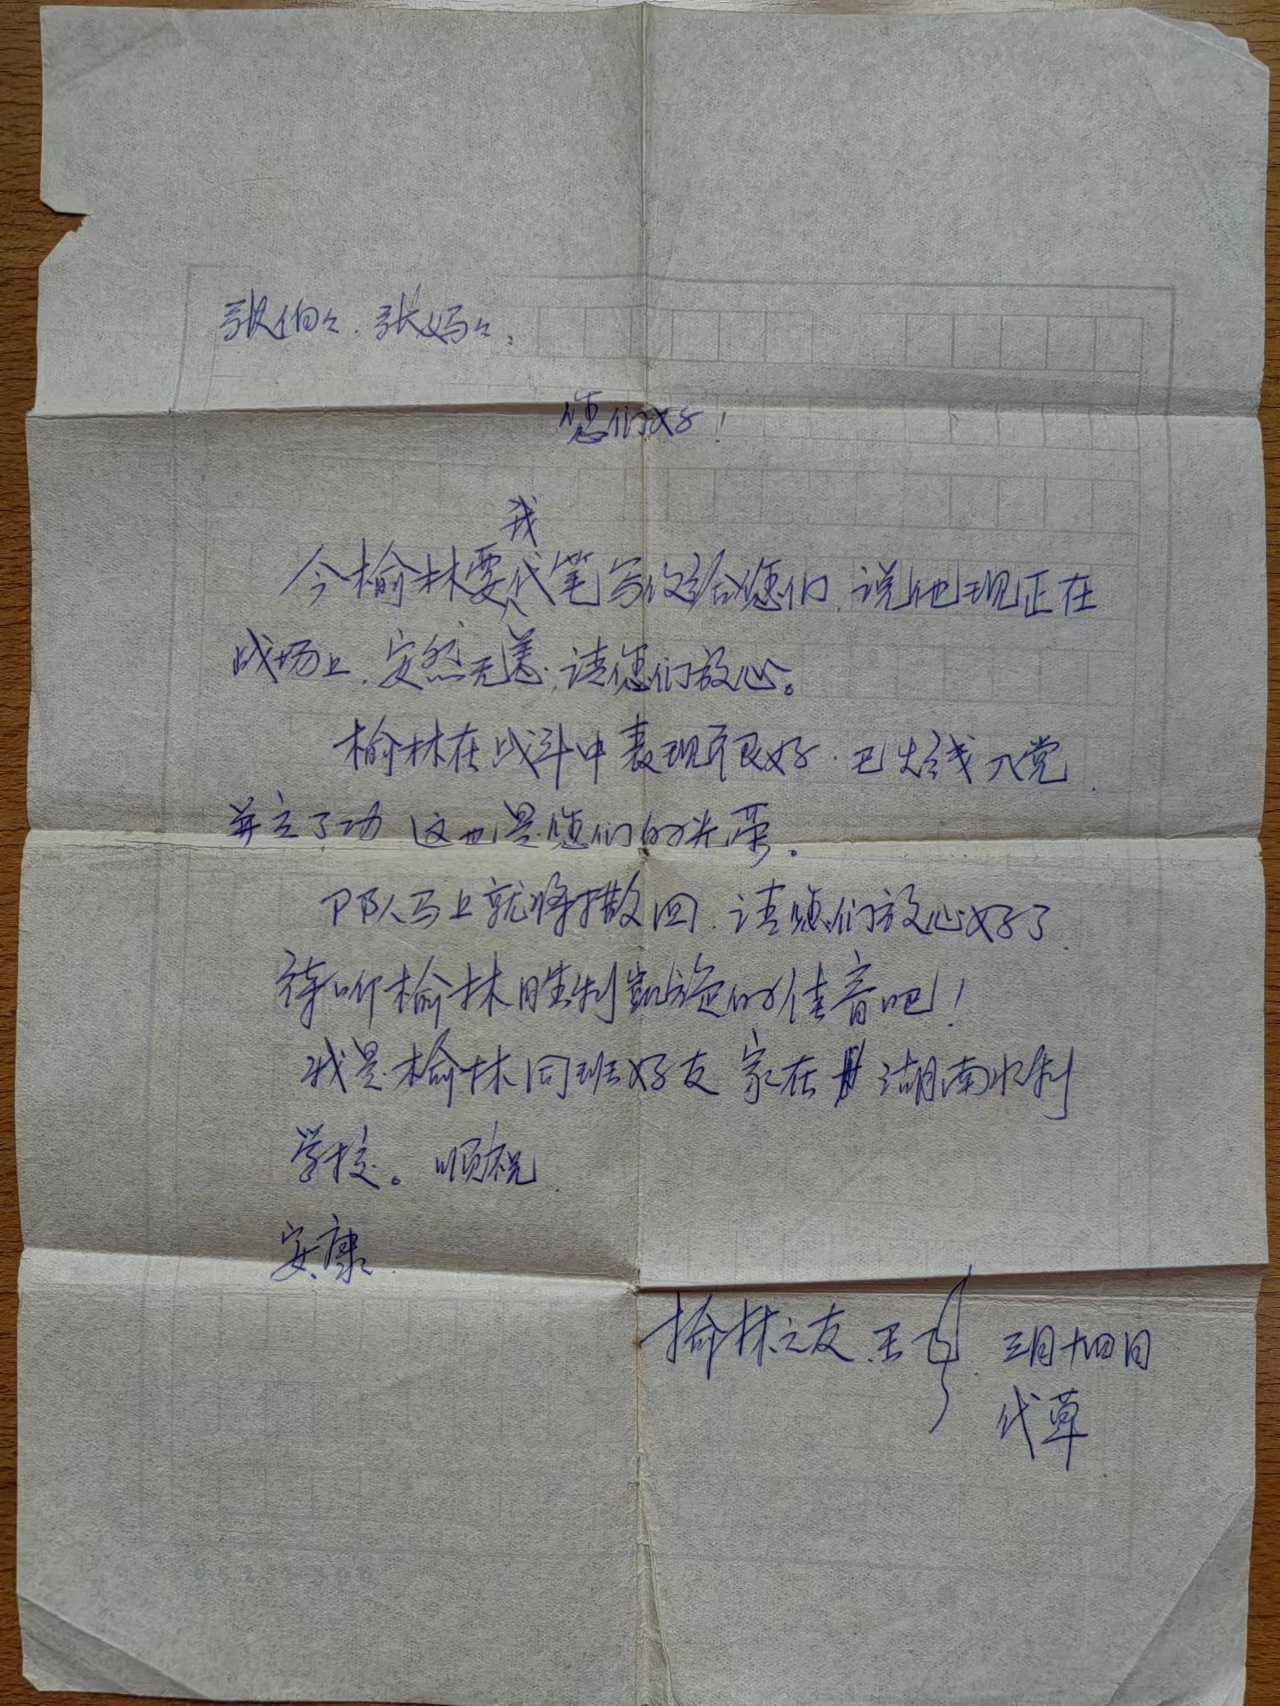 张伯々、张妈々：
您们好！
今榆林要我代笔写信给您们，说他现正在
战场上，安然无恙，请您们放心。
榆林在战斗中表现很好，已火线入党，
并立了功，这也是您们的光荣。
部队马上就将撤回，请您们放心好了，
待听榆林胜利凯旋的佳音吧！
我是榆林同班好友，家在湖南水利
学校。顺祝
安康
榆林之友 王 三月十四日
代草